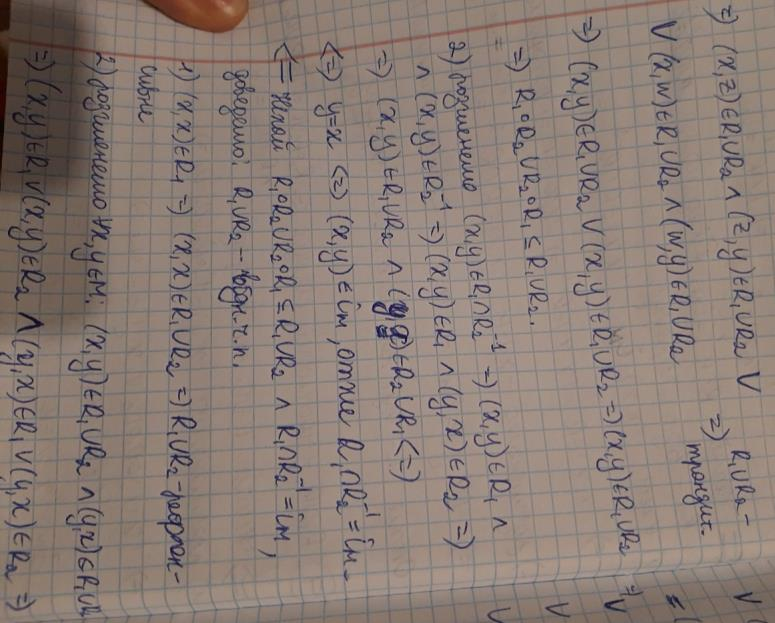 => (x,z)∈R₁∪R₂ ∧ (z,y)∈R₁∪R₂ ∨
∨ (x,w)∈R₁∪R₂ ∧ (w,y)∈R₁∪R₂ => R₁∪R₂ - транзит.
=> (x,y)∈R₁∪R₂ ∨ (x,y)∈R₁∪R₂ => (x,y)∈R₁∪R₂ =>
=> R₁∘R₂∪R₂∘R₁ ⊆ R₁∪R₂.
2) розглянемо (x,y)∈R₁∩R₂⁻¹ => (x,y)∈R₁ ∧
∧ (x,y)∈R₂⁻¹ => (x,y)∈R₁ ∧ (y,x)∈R₂ =>
=> (x,y)∈R₁∪R₂ ∧ (y,x)∈R₂∪R₁ <=>
<=> y=x <=> (x,y)∈iм, отже R₁∩R₂⁻¹=iм.
<= нехай R₁∘R₂∪R₂∘R₁ ⊆ R₁∪R₂ ∧ R₁∩R₂⁻¹=iм,
доведемо: R₁∪R₂ - ч.п.
1) (x,x)∈R₁ => (x,x)∈R₁∪R₂ => R₁∪R₂ - рефлек-
сивне
2) розглянемо ∀x,y∈M: (x,y)∈R₁∪R₂ ∧ (y,x)∈R₁∪R₂
=> (x,y)∈R₁ ∨ (x,y)∈R₂ ∧ (y,x)∈R₁ ∨ (y,x)∈R₂ =>